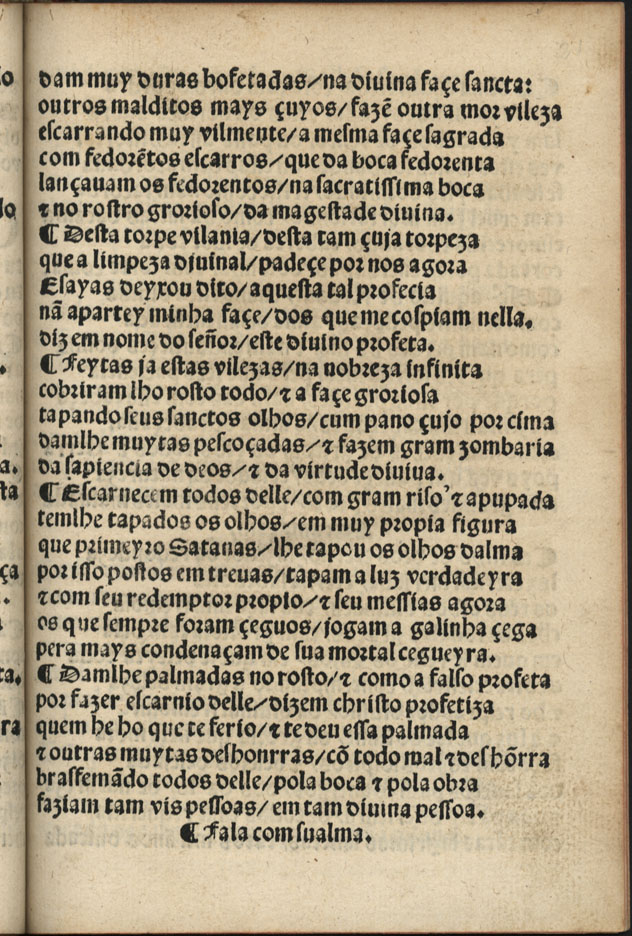 dam muy duras bofetadas/na diuina façe sancta:
outros malditos mays çuyos/fazẽ outra mor vileza
escarrando muy vilmente/a mesma façe sagrada
com fedorẽtos escarros/que da boca fedorenta
lançauam os fedorentos/na sacratissima boca
⁊ no rostro grorioso/da magestade diuina.
¶ Desta torpe vilania/desta tam çuja torpeza
que a limpeza diuinal/padeçe por nos agora
Esayas deyxou dito/aquesta tal profecia
nã apartey minha façe/dos que me cospiam nella.
diz em nome do señor/este diuino profeta.
¶ Feytas ja estas vilezas/na nobreza infinita
cobriram lho rosto todo/⁊ a façe groriosa
tapando seus sanctos olhos/cum pano çujo por cima
damlhe muytas pescoçadas/⁊ fazem gram zombaria
da sapiencia de deos/⁊ da virtude diuiua.
¶ Escarnecem todos delle/com gram riso ⁊ apupada
temlhe tapados os olhos/em muy propia figura
que primeyro Satanas/lhe tapou os olhos dalma
por isso postos em treuas/tapam a luz verdadeyra
⁊ com seu redemptor propio/⁊ seu messias agora
os que sempre foram çeguos/jogam a galinha çega
pera mays condenaçam de sua mortal cegueyra.
¶ Damlhe palmadas no rosto/⁊ como a falso profeta
por fazer escarnio delle/dizem christo profetiza
quem he ho que te ferio/⁊ te deu essa palmada
⁊ outras muytas deshonrras/cõ todo mal ⁊ deshõrra
brasfemãdo todos delle/pola boca ⁊ pola obra
faziam tam vis pessoas/em tam diuina pessoa.
¶ Fala com sualma.